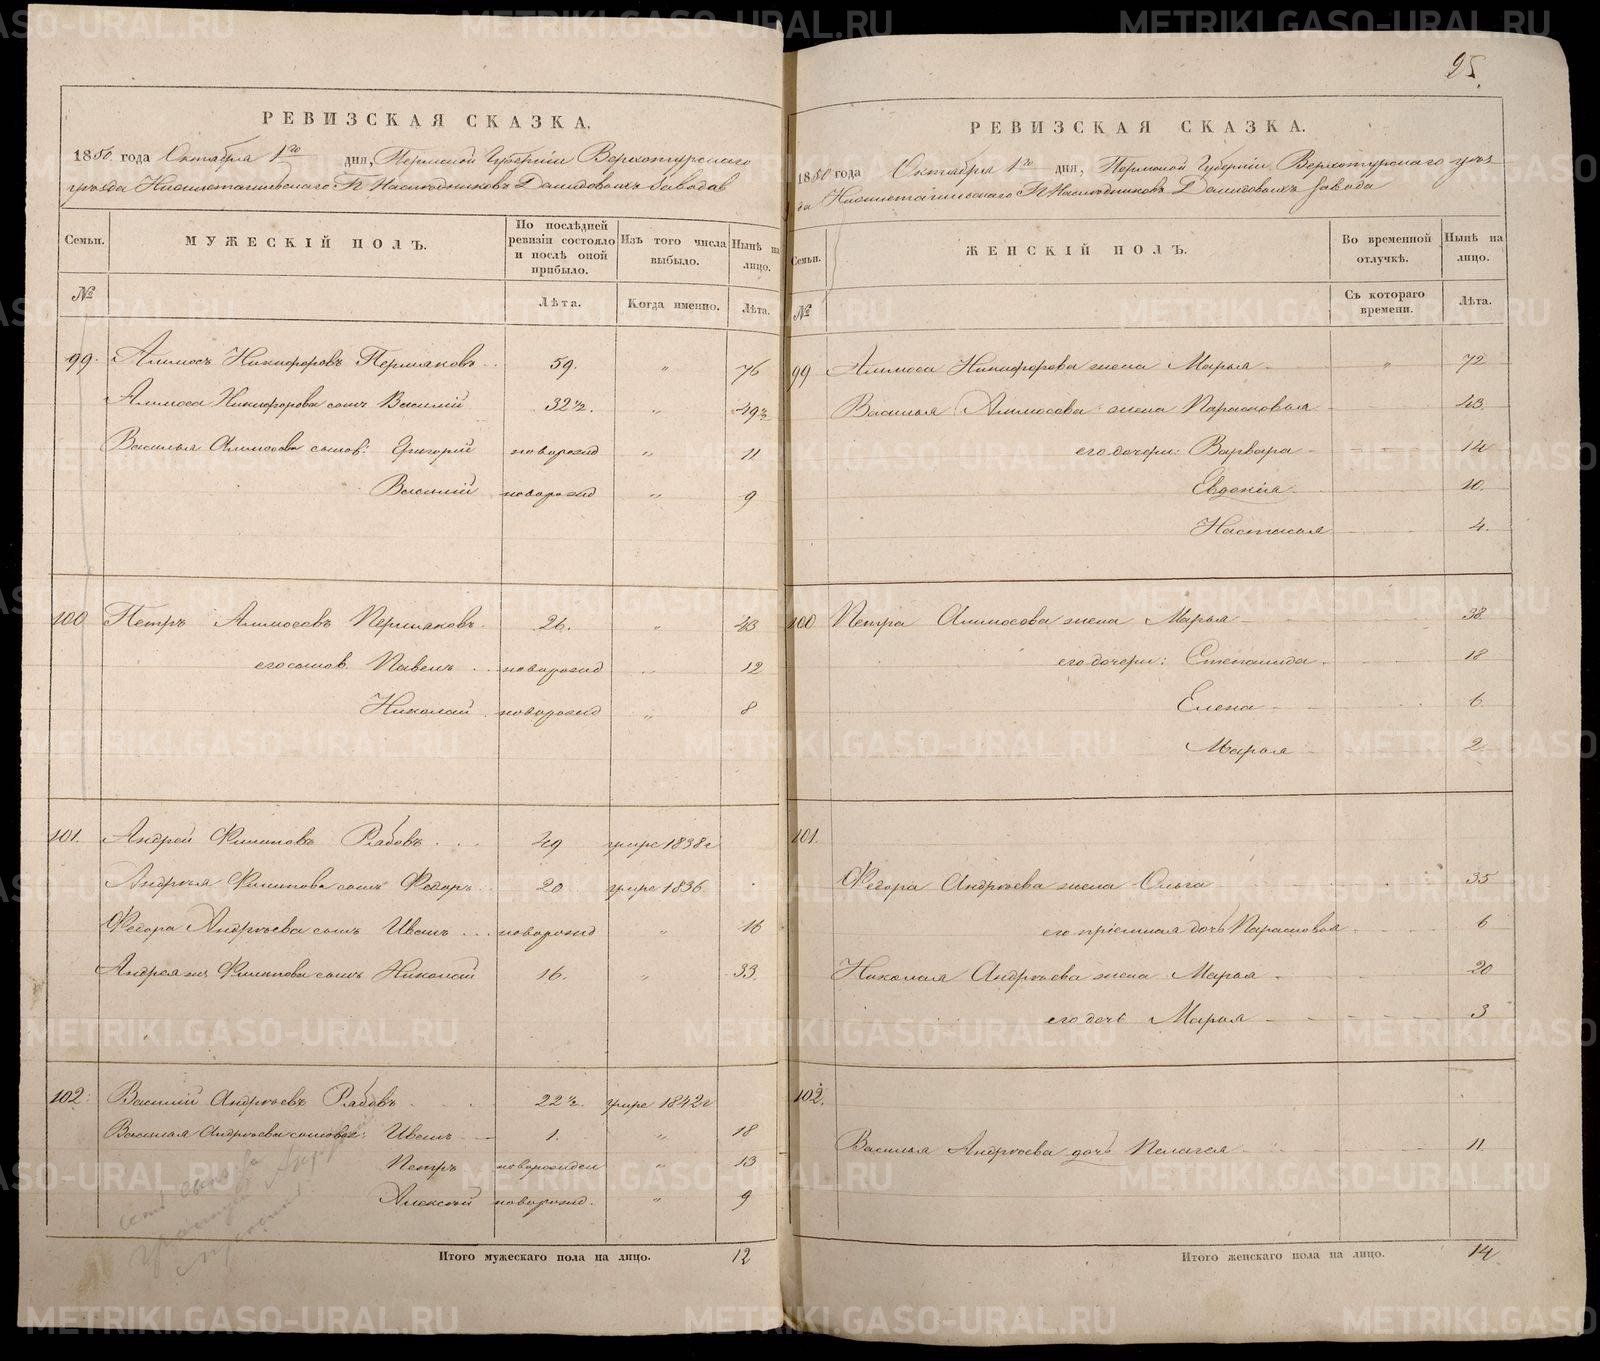 РЕВИЗСКАЯ СКАЗКА.
1850 года Октября 1го дня, Пермской Губерніи Верхотурскаго
уѣзда Нижнетагильскаго Гг Наслѣдниковъ Демидовыхъ завода
Семьи. МУЖЕСКІЙ ПОЛЪ. По послѣдней ревизіи состояло и послѣ оной прибыло. Изъ того числа выбыло. Нынѣ на лицо.
№ Лѣта. Когда именно. Лѣта.
99. Никифоровъ Пермяковъ 59. " 76
Никифорова сынъ Василій 32½. " 49½
Василья сынов: Григорій новорожд " 11
Василій новорожд " 9
100 Петръ Пермяковъ 26. " 43
его сынов. Павелъ новорожд " 12
Николай новорожд " 8
101. Андрей Филиповъ Рябовъ 49 умре 1838 г
Андрея Филипова сынъ Федоръ 20 умре 1836
Федора Андреева сынъ Иванъ новорожд " 16
Андрея же Филипова сынъ Николай 16. " 33
102. Василій Андреевъ Рябовъ 22½. умре 1842 г
Василья Андреева сыновья: Иванъ 1. " 18
Петръ новорожден " 13
Алексѣй новорожд. " 9
Итого мужескаго пола на лицо. 12
25.
РЕВИЗСКАЯ СКАЗКА.
1850 года Октября 1го дня, Пермской Губерніи Верхотурскаго уѣз-
да Нижнетагильскаго Гг Наслѣдниковъ Демидовыхъ завода
Семьи. ЖЕНСКІЙ ПОЛЪ. Во временной отлучкѣ. Нынѣ на лицо.
№ Съ котораго времени. Лѣта.
99 Никифорова жена Марья " 72
Василья жена Парасковья 43.
его дочери: Варвара 14
Евдокія 10.
Настасья 4.
100 Петра жена Марья 38.
его дочери: Степанида 18
Елена 6.
Марья 2.
101.
Федора Андреева жена Ольга 35
его пріемная дочь Парасковья 6
Николая Андреева жена Марья 20
его дочь Марья 3
102.
Василья Андреева дочь Пелагея 11
Итого женскаго пола на лицо. 14
METRIKI.GASO-URAL.RU